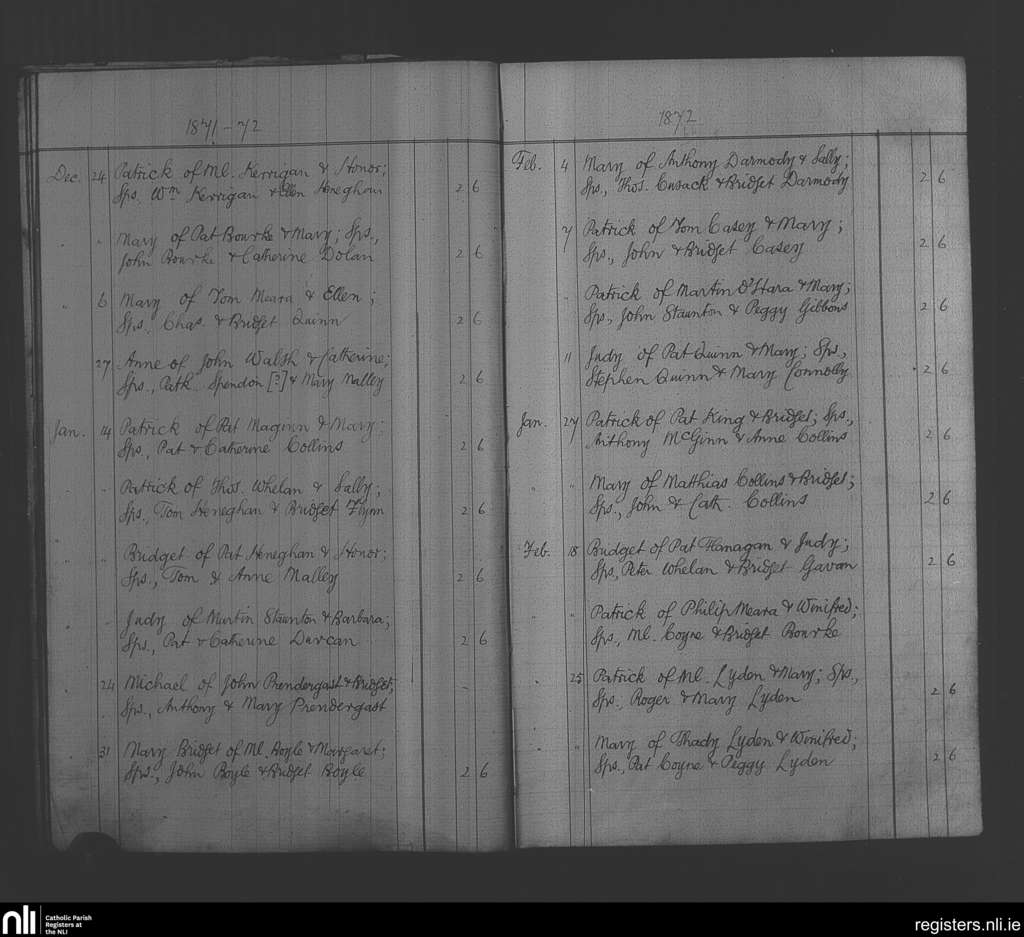 1871-72
Dec. 24 Patrick of Ml. Kerrigan & Honor;
Sps. Wm Kerrigan & Ellen Heneghan 2 6
" " Mary of Pat Bourke & Mary; Sps.,
John Bourke & Catherine Dolan 2 6
" 6 Mary of Tom Meara & Ellen;
Sps., Chas. & Bridget Quinn 2 6
27 Anne of John Walsh & Catherine;
Sps., Patk. Spendon [?] & Mary Malley 2 6
Jan. 14 Patrick of Pat Maginn & Mary;
Sps., Pat & Catherine Collins 2 6
" " Patrick of Thos. Whelan & Sally;
Sps., Tom Heneghan & Bridget Flynn 2 6
" " Bridget of Pat Heneghan & Honor;
Sps., Tom & Anne Malley 2 6
" " Judy of Martin Staunton & Barbara;
Sps., Pat & Catherine Durcan 2 6
" 24 Michael of John Prendergast & Bridget;
Sps., Anthony & Mary Prendergast
" 31 Mary Bridget of Ml. Boyle & Margaret;
Sps., John Boyle & Bridget Boyle 2 6
1872
Feb. 4 Mary of Anthony Darmody & Sally;
Sps., Thos. Cusack & Bridget Darmody 2 6
7 Patrick of Tom Casey & Mary;
Sps., John & Bridget Casey 2 6
" Patrick of Martin O'Hara & Mary;
Sps., John Staunton & Peggy Gibbons 2 6
11 Judy of Pat Quinn & Mary; Sps.,
Stephen Quinn & Mary Connolly 2 6
Jan. 27 Patrick of Pat King & Bridget; Sps.,
Anthony McGinn & Anne Collins 2 6
" " Mary of Matthias Collins & Bridget;
Sps., John & Cath. Collins 2 6
Feb. 18 Bridget of Pat Flanagan & Judy;
Sps., Peter Whelan & Bridget Gavan 2 6
" " Patrick of Philip Meara & Winifred;
Sps., Ml. Coyne & Bridget Bourke 2 6
" 25 Patrick of Ml. Lyden & Mary; Sps.,
Sps., Roger & Mary Lyden 2 6
" " Mary of Thady Lyden & Winifred;
Sps., Pat Coyne & Peggy Lyden 2 6
nli Catholic Parish
Registers at
the NLI
registers.nli.ie